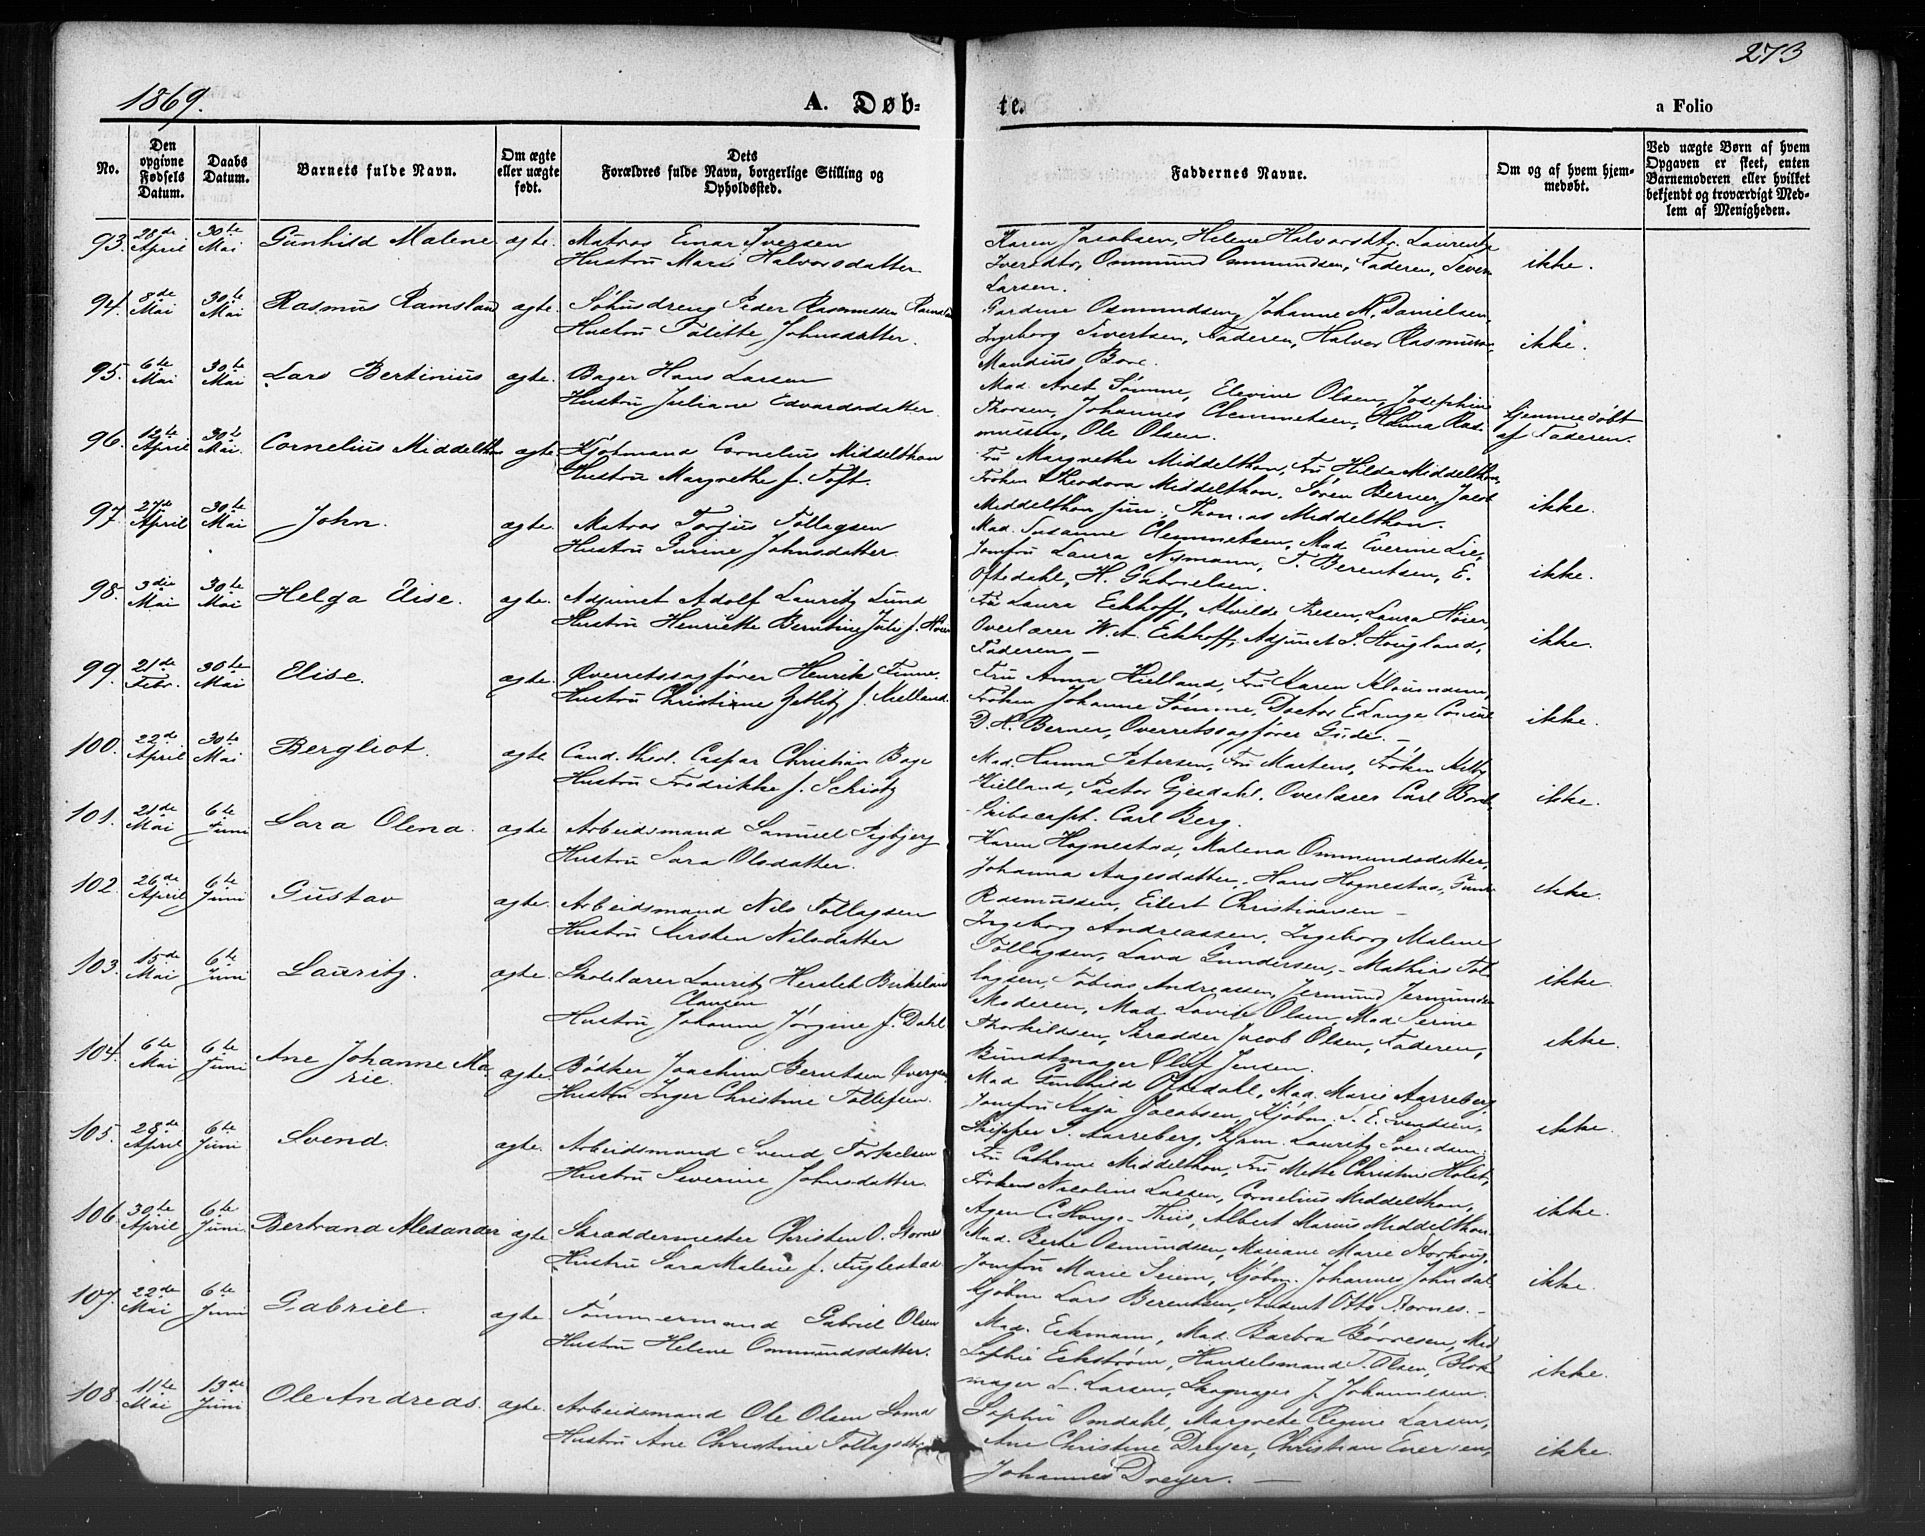 273
1869.
A. Døb-
te.
a Folio
No.
Den opgivne Fødsels Datum.
Daabs Datum.
Barnets fulde Navn.
Om ægte eller uægte født.
Dets Forældres fulde Navn, borgerlige Stilling og Opholdssted.
Faddernes Navne.
Om og af hvem hjem-
medøbt.
Ved uægte Børn af hvem Opgaven er skeet, enten Barnemoderen eller hvilket bekjendt og troværdigt Med-
lem af Menigheden.
93. 28de April 30te Mai Gunhild Malene ægte. Matros Einar Iversen
Hustru Mari Halvorsdatter
Karen Jacobsen, Helene Halvorsdtr, Laurentze
Iversdtr, Ommund Ommundsen, Faderen, Seven
Larsen.
ikke.
94. 8de Mai 30te Mai Rasmus Ramsland ægte. Peder Rasmussen
Hustru Johnsdatter.
Gurdine Osmundsen, Johanne M. Danielsen,
Ingeborg Sivertsen, Faderen, Halvor Rasmussen,
Mandius
ikke.
95. 6te Mai 30te Mai Lars Bertinius ægte. Bager Hans Larsen
Hustru Juliane Edvardsdatter.
Mad. Aret Sømme, Elevine Olsen, Josephine
Thorsen, Johannes Clemmetsen, Ras-
mussen, Ole Olsen.
hjemmedøbt
af Faderen.
96. 12te April 30te Mai. Cornelius Middelthon ægte Kjøbmand Cornelius Middelthon
Hustru Margrethe f. Toft.
Fru Margrethe Middelthon, Fru Hilda Middelthon,
Frøken Theodora Middelthon, Søren Berner, Jacob
Middelthon jun. Thomas Middelthon.
ikke.
97. 27de April 30te Mai John. ægte. Matros Torjus Tollagsen
Hustru Gurine Johnsdatter.
Mad. Susanne Clemmetsen, Mad. Everine Lie,
Jomfru Laura Nymann, T. Berentsen, E.
Oftedahl, H. Gabrielsen.
ikke.
98. 3die Mai 30te Mai Helga Elise. ægte. Adjunct Adolf Lauritz Lund
Hustru Henriette Berntine Julie f.
Fru Laura Eckhoff, Alvilde Laura Høier,
Overlærer W. A. Eckhoff, Adjunct S. Hougland,
Faderen —
ikke.
99. 21de Febr. 30te Mai Elise. ægte. Overretssagfører Henrik Finne.
Hustru Christiane Zetlitz f. Kielland.
Fru Anna Kielland, Fru Karen
Frøken Johanne Sømme, Doctor E. Lange, Consul
D. H. Berner, Overretssagfører Gude. —
ikke.
100. 22de April 30te Mai Bergliot. ægte. Cand. theol. Caspar Christian
Hustru Fredrikke f. Schiotz
Mad. Hanna Petersen, Fru Martens, Frøken
Kielland, Pastor Gjesdahl, Overlærer Carl
Skibscapt. Carl Berg.
ikke.
101. 21de Mai 6te Juni Sara Olena. ægte Arbeidsmand Samuel
Hustru Sara Olsdatter.
Karen Hognestad, Malena Ommundsdatter,
Johanna Aagesdatter, Hans Hognestad,
Rasmussen, Eilert Christiansen —
ikke.
102. 26de April 6te Juni Gustav ægte. Arbeidsmand Nils Tollagsen
Hustru Kirsten Nilsdatter
Ingeborg Andreassen, Ingeborg Malene
Tollagsen, Lava Gundersen, — Mathias Tol-
lagsen, Tobias Andreassen, Jermund Jermundsen
ikke.
103. 15de Mai 6te Juni Lauritz. ægte. Skolelærer Lauritz Herslet Birkeland
Clausen
Hustru Johanne Jørgine f. Dahl.
Moderen, Mad. Lovise Olsen, Mad Serine
Thorkildsen, Skrædder Jacob Olsen, Faderen,
Bundtmager Oluf Jensen.
ikke.
104. 6te Mai 6te Juni Ane Johanne Ma-
rie. ægte. Bødker Joachim Berntsen
Hustru Inger Christine Tollefsen.
Mad Gunhild Oftedahl, Mad. Marie Aarreberg,
Jomfru Kaja Jacobsen, Kjøbm. T. E. Svendsen,
Skipper S. Aarreberg, Lauritz Svendsen.
ikke.
105. 28de April 6te Juni Svend. ægte. Arbeidsmand Svend Torkelsen
Hustru Severine Johnsdatter.
Fru Cathrine Middelthon, Fru Mette Christine Holst,
Frøken Nicoline Lassen, Cornelius Middelthon,
Albert Marius Middelthon.
ikke.
106. 30te April 6te Juni Bertrand Alexander ægte. Skræddermester Christen O. Stornes
Hustru Sara Malene f. Fuglestad.
Mad. Berte Osmundsen, Mariane Marie Storhoug,
Jomfru Marie Seiem, Kjøbm. Johannes Johndal
Kjøbm Lars Berentsen, Student Otto Stornes. —
ikke.
107. 22de Mai 6te Juni Gabriel. ægte. Tømmermand Gabriel Olsen
Hustru Helene Ommundsdatter.
Mad. Eckmann, Mad. Barbra Børresen, Mad
Sophie Eckstrøm, Handelsmand T. Olsen, Blok-
mager L. Larsen, Skomager J. Johannesen.
ikke.
108. 11te Mai 13de Juni Ole Andreas. ægte. Arbeidsmand Ole Olsen
Hustru Ane Christine
Sophie Omdahl, Margrete Regine Larsen,
Ane Christine Dreyer, Christian Evensen,
Johannes Dreyer. —
ikke.